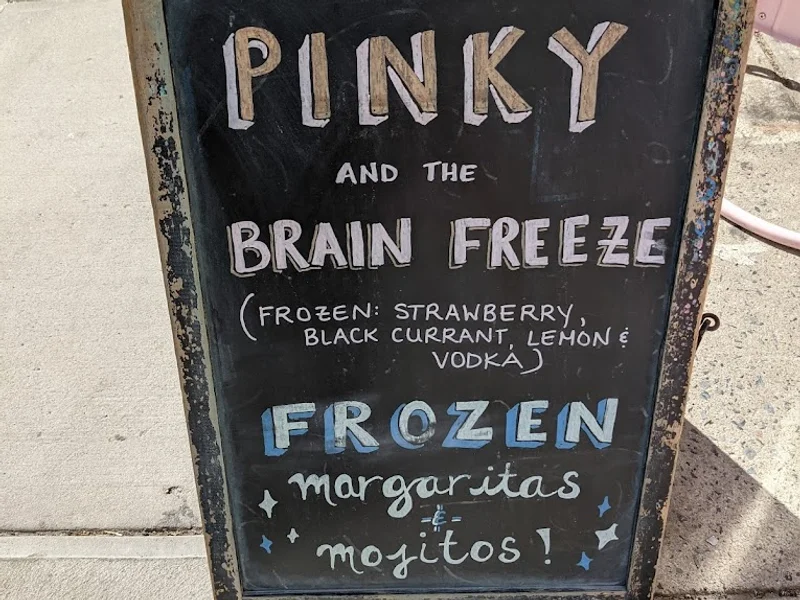 PINKY
AND THE
BRAIN FREEZE
(FROZEN: STRAWBERRY,
BLACK CURRANT, LEMON &
VODKA)
FROZEN
margaritas
-&-
mojitos!